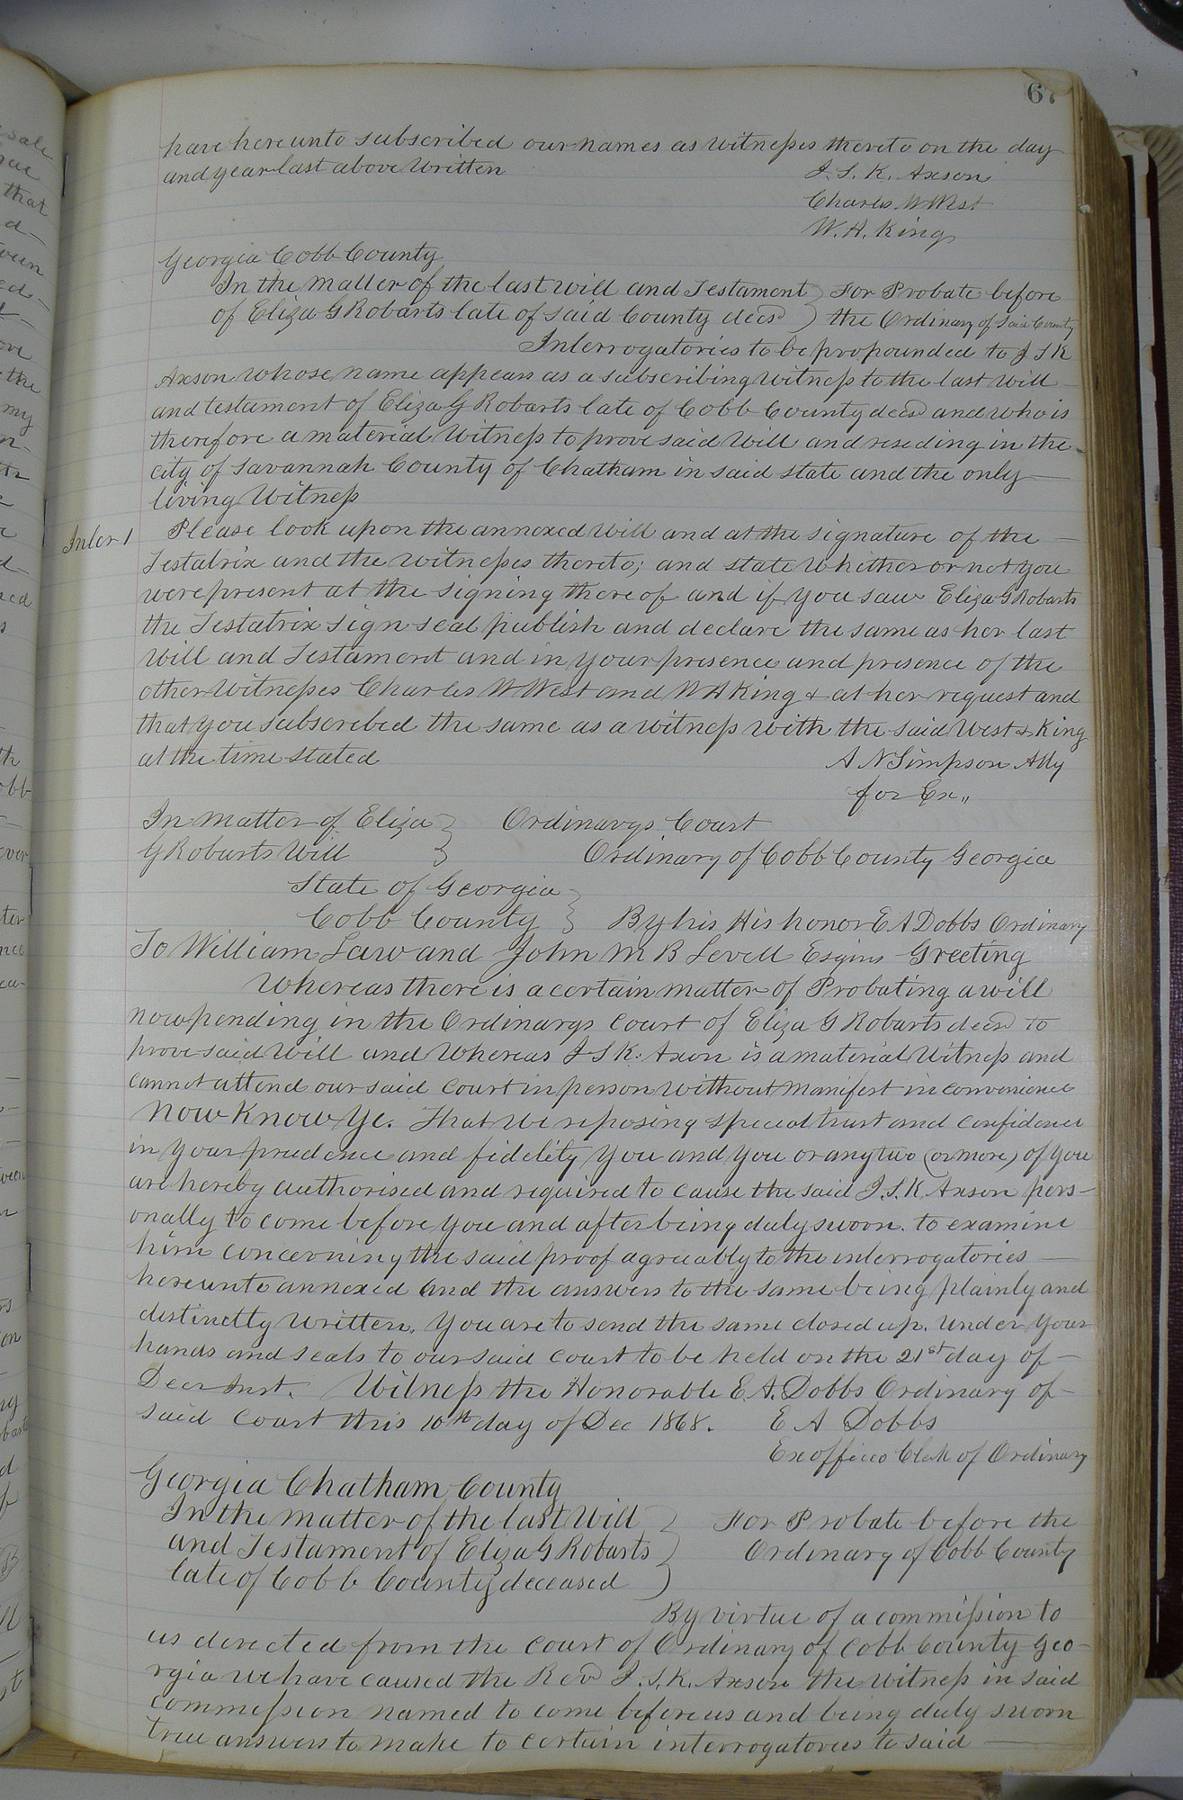 67
have hereunto subscribed our names as witnesses thereto on the day
and year last above written
I. S. K. Axson
Charles W West
W. A. King
Georgia Cobb County
In the matter of the last will and Testament
of Eliza G Robarts late of said County decsd
For Probate before
the Ordinary of Said County
Interrogatories to be propounded to I S K
Axson whose name appears as a subscribing witness to the last will
and testament of Eliza G Robarts late of Cobb County decsd and who is
therefore a material witness to prove said will and reseding in the
city of Savannah County of Chatham in said state and the only
living Witness
Inter 1
Please look upon the annexed will and at the signature of the
Testatrix and the witnesses thereto; and state whither or not you
were present at the signing thereof and if you saw Eliza G Robarts
the Testatrix sign seal publish and declare the same as her last
will and Testament and in your presence and presence of the
other witnesses Charles W West and W A King & at her request and
that you subscribed the same as a witness with the said West & King
at the time stated
A N Simpson Atty
for Ex,,
In matter of Eliza
G Robarts Will
Ordinarys Court
Ordinary of Cobb County Georgia
State of Georgia
Cobb County
By his His honor E A Dobbs Ordinary
To William Law and John M B Lovell Esqirs Greeting
Whereas there is a certain matter of Probating a will
now pending in the Ordinarys Court of Eliza G Robarts decsd to
prove said will and whereas I S K. Axon is a material witness and
cannot attend our said court in person without manifest inconvenience
Now Know Ye. That we reposing special trust and confidence
in your prudence and fidelity you and you or any two (or more) of you
are hereby authorised and required to cause the said I. S. K. Axson pers-
onally to come before you and after being duly sworn. to examine
him concerning the said proof agreeably to the interrogatories
hereunto annexed and the answers to the same being plainly and
distinctly written. You are to send the same closed up. under your
hands and seals to our said court to be held on the 21st day of
Decr Inst. Witness the Honorable E. A. Dobbs Ordinary of
said court this 10th day of Dec 1868.
E A Dobbs
Exofficio Clerk of Ordinary
Georgia Chatham County
In the matter of the last Will
and Testament of Eliza G Robarts
late of Cobb County deceased
For Probate before the
Ordinary of Cobb County
By virtue of a commission to
us derected from the court of Ordinary of Cobb County Geo-
rgia we have caused the Revd I. S. K. Axson the witness in said
commission named to come before us and being duly sworn
true answers to make to certain interrogatories to said